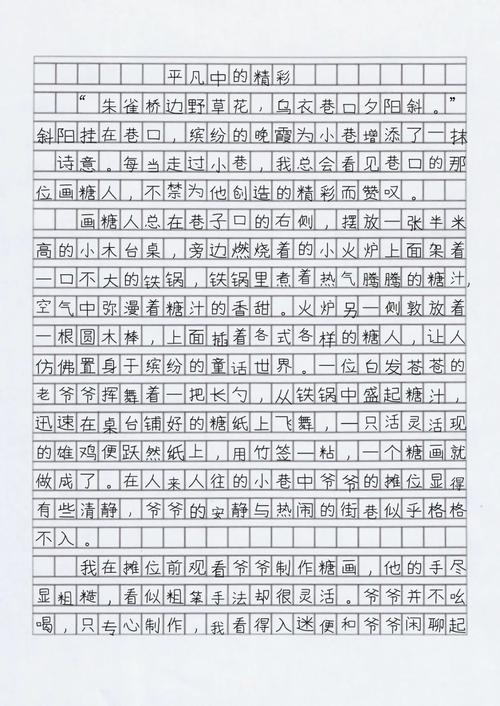 平凡中的精彩
“朱雀桥边野草花，乌衣巷口夕阳斜。”
斜阳挂在巷口，缤纷的晚霞为小巷增添了一抹
诗意。每当走过小巷，我总会看见巷口的那
位画糖人，不禁为他创造的精彩而赞叹。
画糖人总在巷子口的右侧，摆放一张半米
高的小木台桌，旁边燃烧着的小火炉上面架着
一口不大的铁锅，铁锅里煮着热气腾腾的糖汁，
空气中弥漫着糖汁的香甜。火炉另一侧敦放着
一根圆木棒，上面插着各式各样的糖人，让人
仿佛置身于缤纷的童话世界。一位白发苍苍的
老爷爷挥舞着一把长勺，从铁锅中盛起糖汁，
迅速在桌台铺好的糖纸上飞舞，一只活灵活现
的雄鸡便跃然纸上，用竹签一粘，一个糖画就
做成了。在人来人往的小巷中爷爷的摊位显得
有些清静，爷爷的安静与热闹的街巷似乎格格
不入。
我在摊位前观看爷爷制作糖画，他的手尽
显粗糙，看似粗笨手法却很灵活。爷爷并不吆
喝，只专心制作，我看得入迷便和爷爷闲聊起